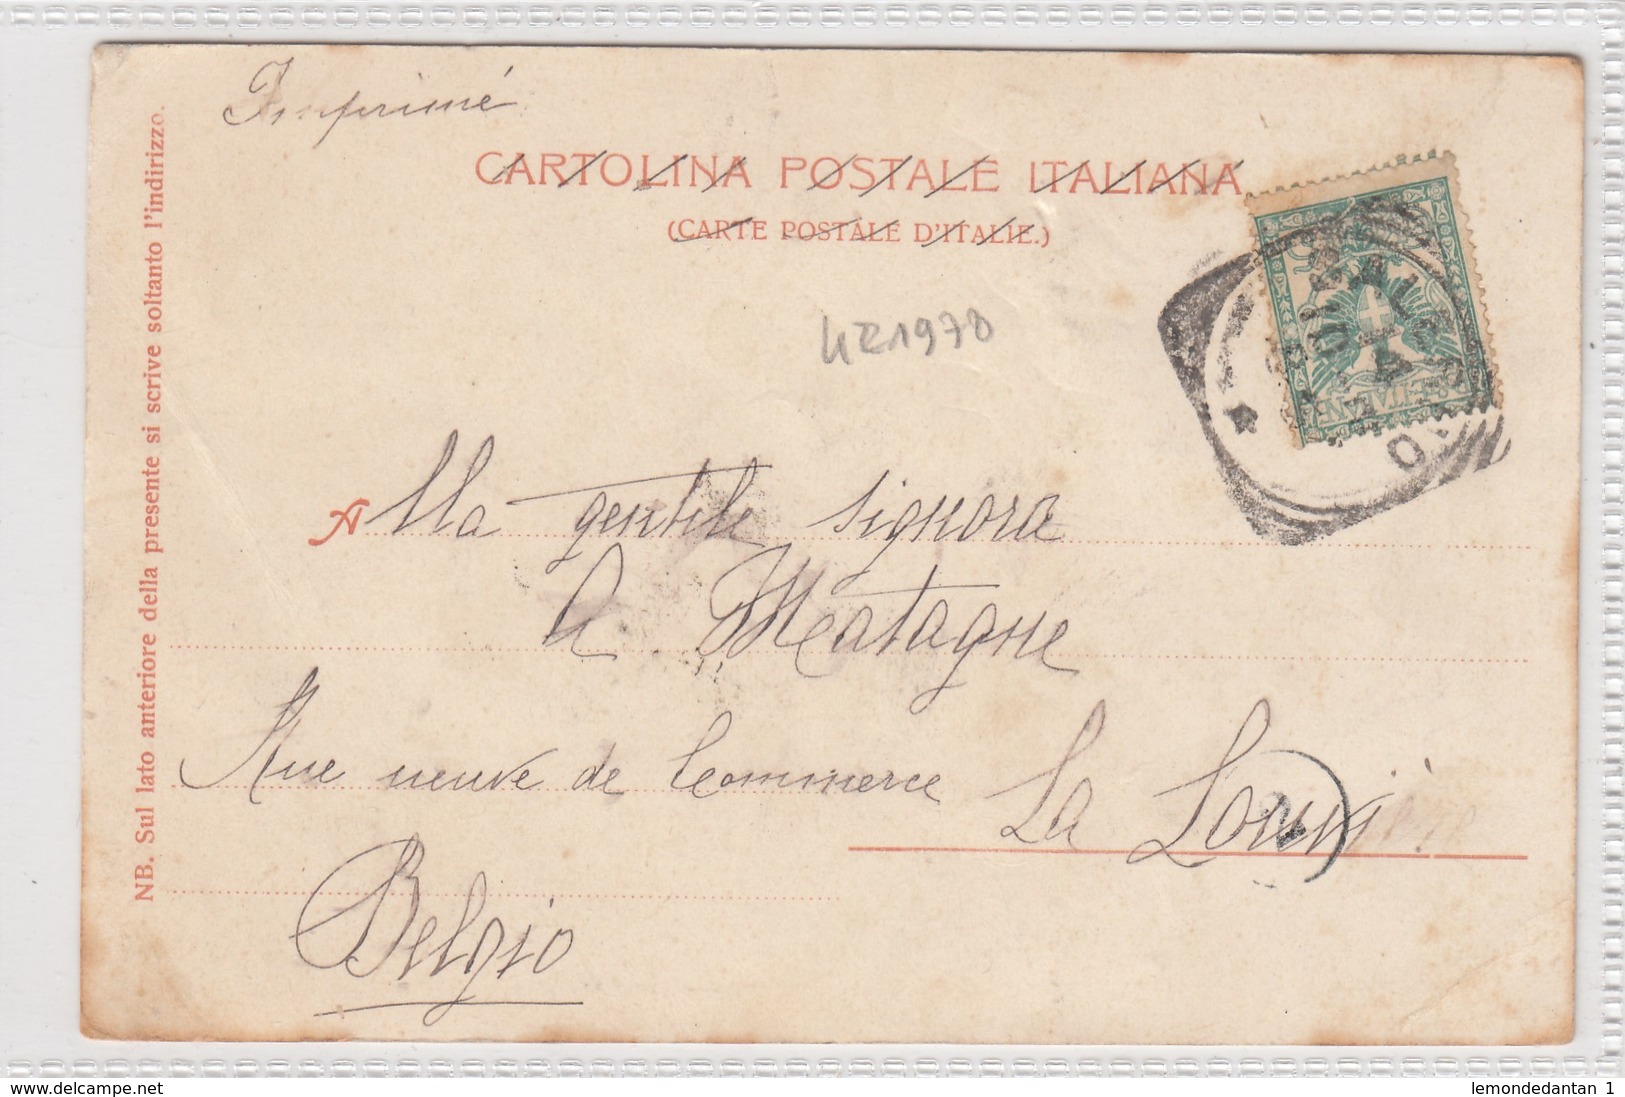 Imprimé
CARTOLINA POSTALE ITALIANA
(CARTE POSTALE D'ITALIE.)
NB. Sul lato anteriore della presente si scrive soltanto l'indirizzo.
Alla gentile signora
A Matagne
Rue neuve de Commerce La Louvière
Belgio
2
www.delcampe.net
lemondedantan 1